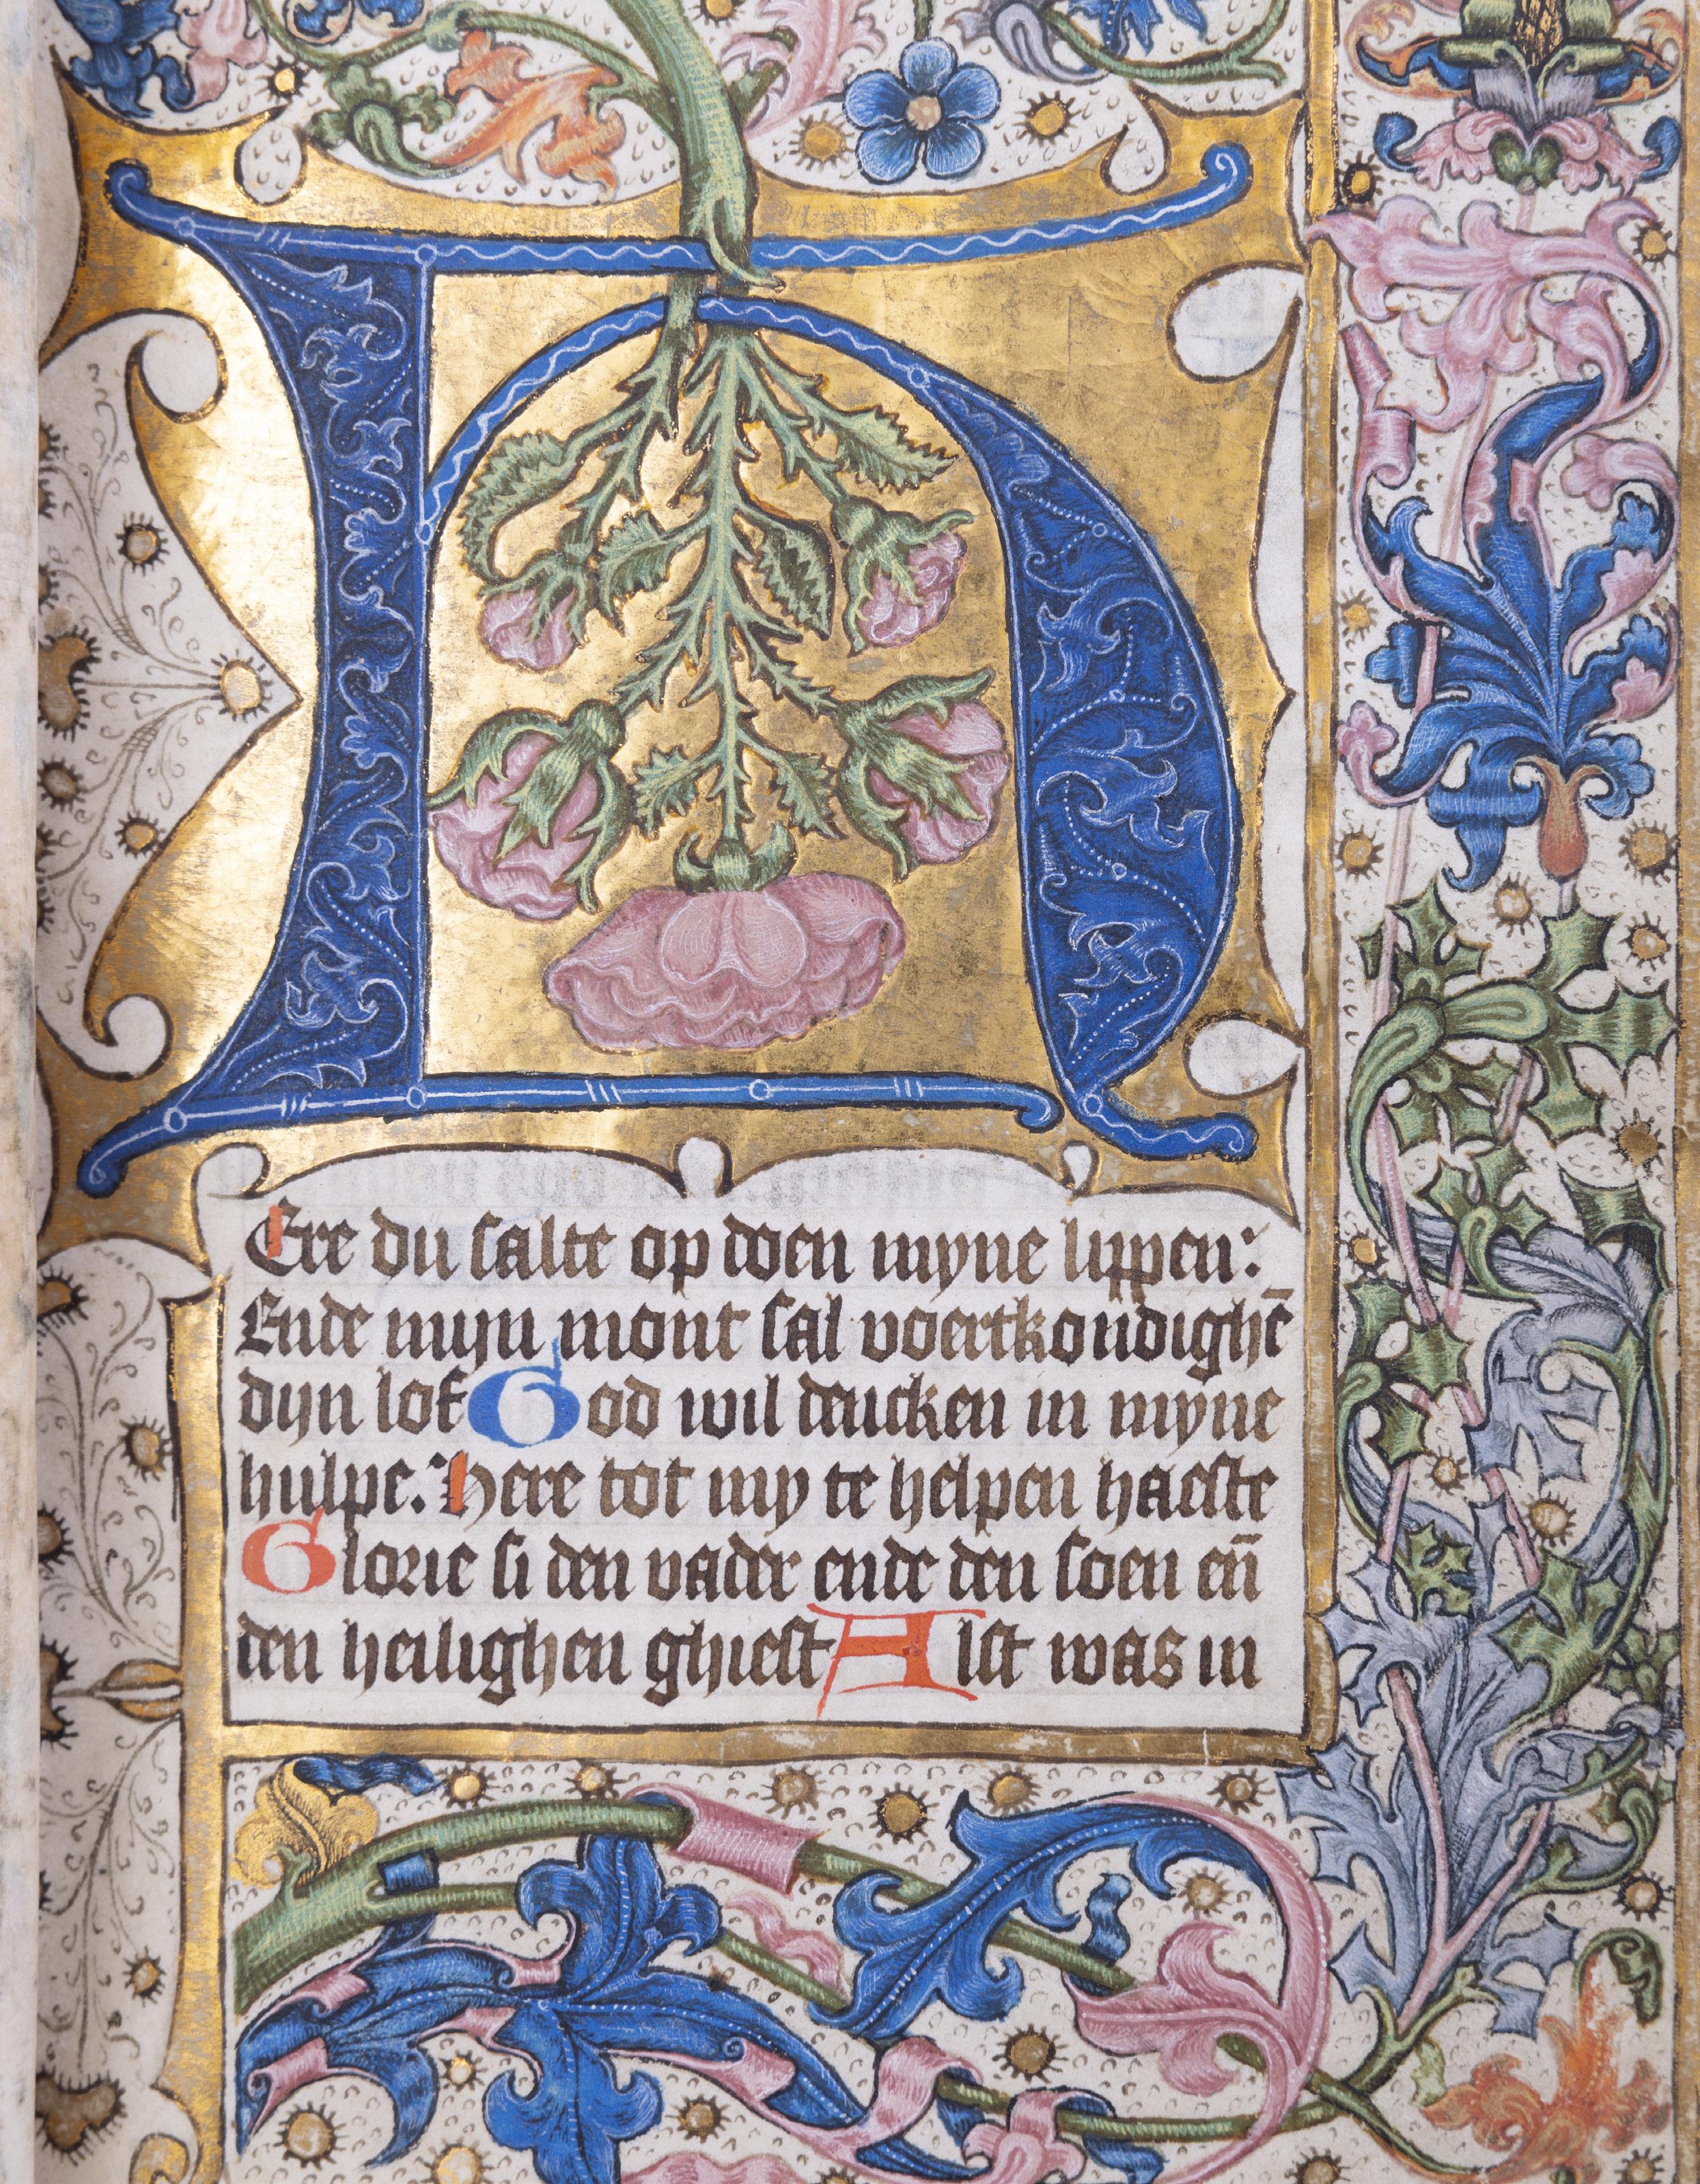 H
Ere du salte op doen myne lippen:
Ende mijn mont sal voertkoůdighē
dijn lof God wil dencken in myne
hulpe: here tot my te helpen haeste
Glorie si den vader ende den soen eñ
den heilighen ghiest Alst was in